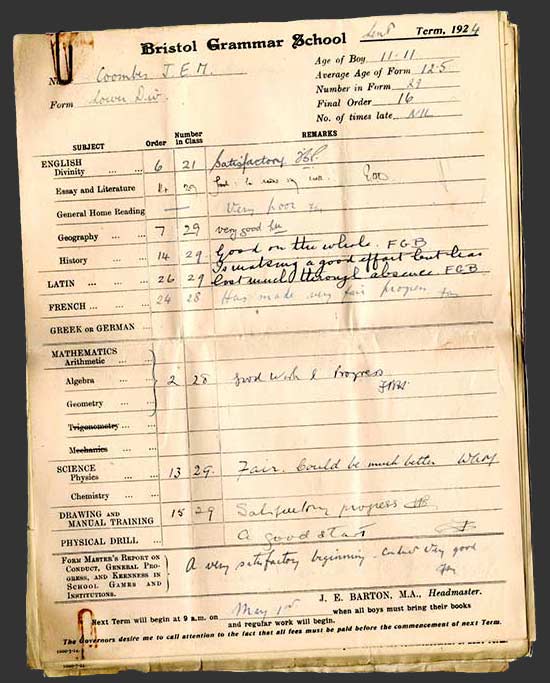 Bristol Grammar School Lent Term, 1924
Name Coombes J.E.M.
Form Lower Div.
Age of Boy 11·11
Average Age of Form 12·5
Number in Form 29
Final Order 16
No. of times late Nil
SUBJECT Order Number in Class REMARKS
ENGLISH
Divinity ... ... 6 21 Satisfactory
Essay and Literature 14 29
General Home Reading — Very poor
Geography ... ... 7 29 very good
History ... ... 14 29. Good on the whole. F G B
Is making a good effort but has
LATIN ... ... ... 26 29 lost much through absence. F G B
FRENCH ... ... ... 24 28 Has made very fair progress
GREEK OR GERMAN ...
MATHEMATICS
Arithmetic ... ...
Algebra ... ... 2 28 Good Work & Progress
Geometry ... ...
Trigonometry ...
Mechanics ...
SCIENCE
Physics ... ... 13 29. Fair. Could be much better
Chemistry ... ...
DRAWING AND
MANUAL TRAINING 15 29 Satisfactory progress
PHYSICAL DRILL ... A good start
FORM MASTER'S REPORT ON
CONDUCT, GENERAL PRO-
GRESS, AND KEENNESS IN
SCHOOL GAMES AND
INSTITUTIONS.
A very satisfactory beginning. Conduct very good
J. E. BARTON, M.A., Headmaster.
Next Term will begin at 9 a.m. on May 1st when all boys must bring their books
and regular work will begin.
The Governors desire me to call attention to the fact that all fees must be paid before the commencement of next Term.